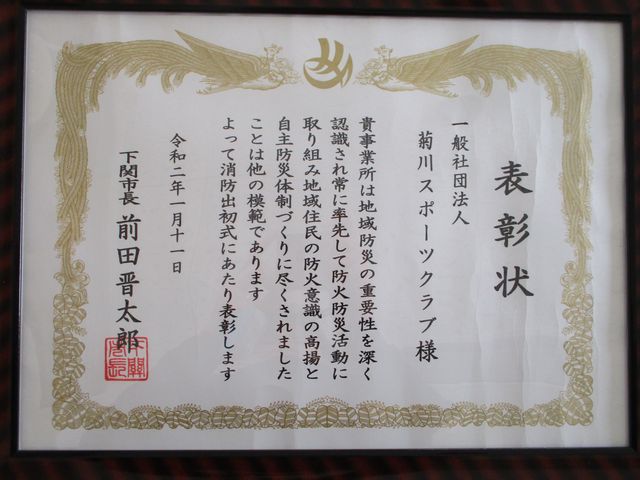 表彰状
一般社団法人
菊川スポーツクラブ様
貴事業所は地域防災の重要性を深く
認識され常に率先して防火防災活動に
取り組み地域住民の防火意識の高揚と
自主防災体制づくりに尽くされました
ことは他の模範であります
よって消防出初式にあたり表彰します
令和二年一月十一日
下関市長 前田晋太郎
下關市長